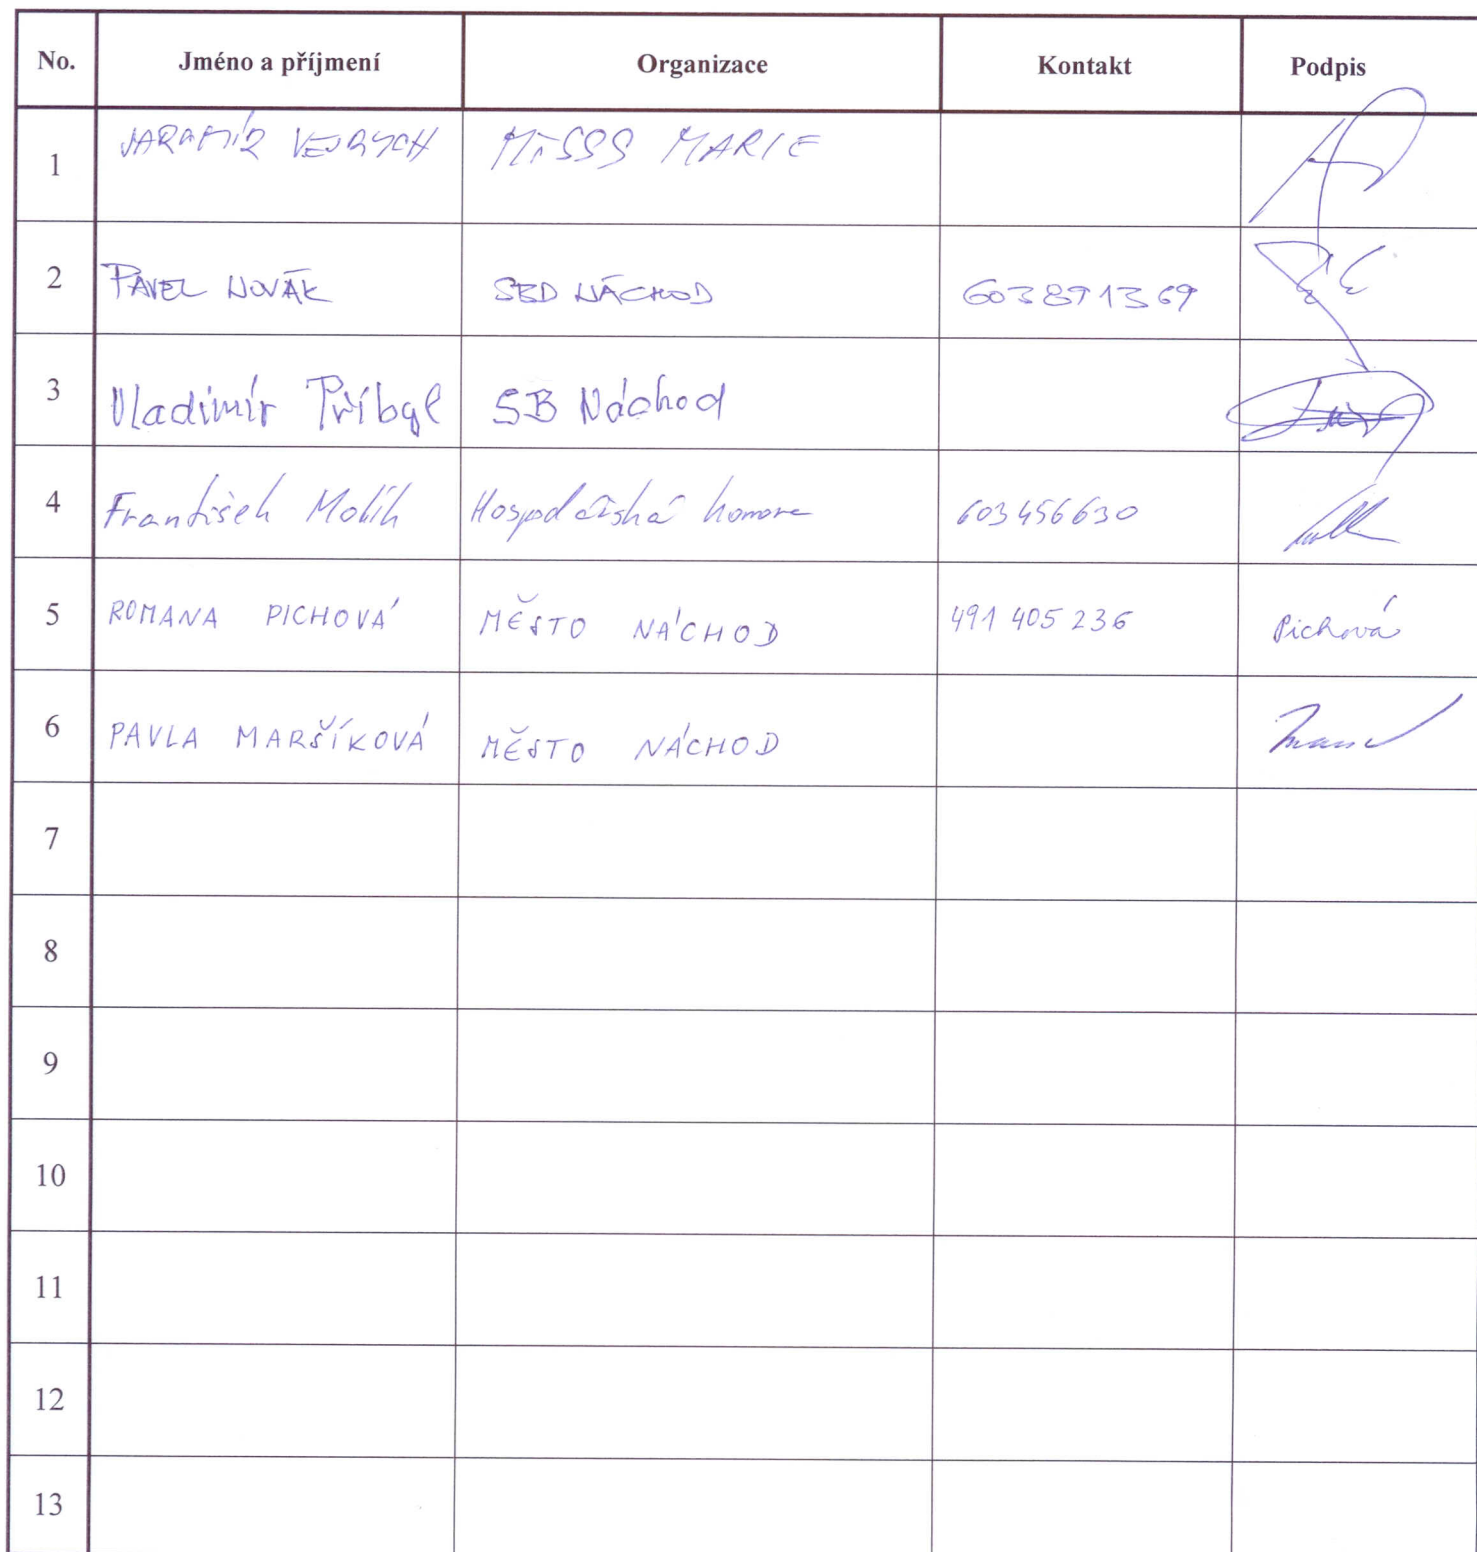 No. Jméno a příjmení Organizace Kontakt Podpis
1 JAROMÍR VEJRYCH MěSSS MARIE
2 PAVEL NOVÁK SBD NÁCHOD 603891369
3 Vladimír Přibyl SB Náchod
4 František Molík Hospodářská komora 603456630
5 ROMANA PICHOVÁ MĚSTO NÁCHOD 491 405 236 Pichová
6 PAVLA MARŠÍKOVÁ MĚSTO NÁCHOD
7
8
9
10
11
12
13